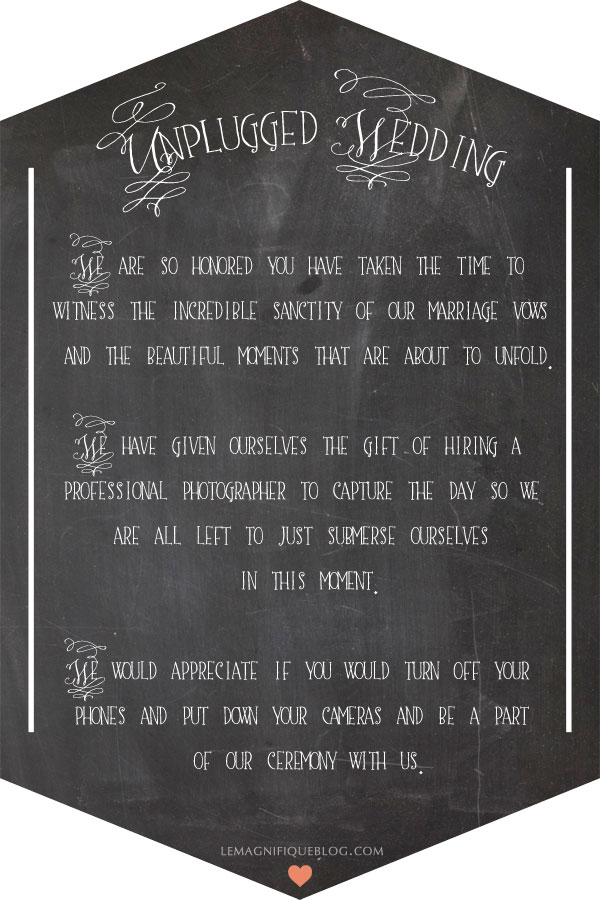 Unplugged Wedding
We are so honored you have taken the time to
witness the incredible sanctity of our marriage vows
and the beautiful moments that are about to unfold.
We have given ourselves the gift of hiring a
professional photographer to capture the day so we
are all left to just submerse ourselves
in this moment.
We would appreciate if you would turn off your
phones and put down your cameras and be a part
of our ceremony with us.
LEMAGNIFIQUEBLOG.COM